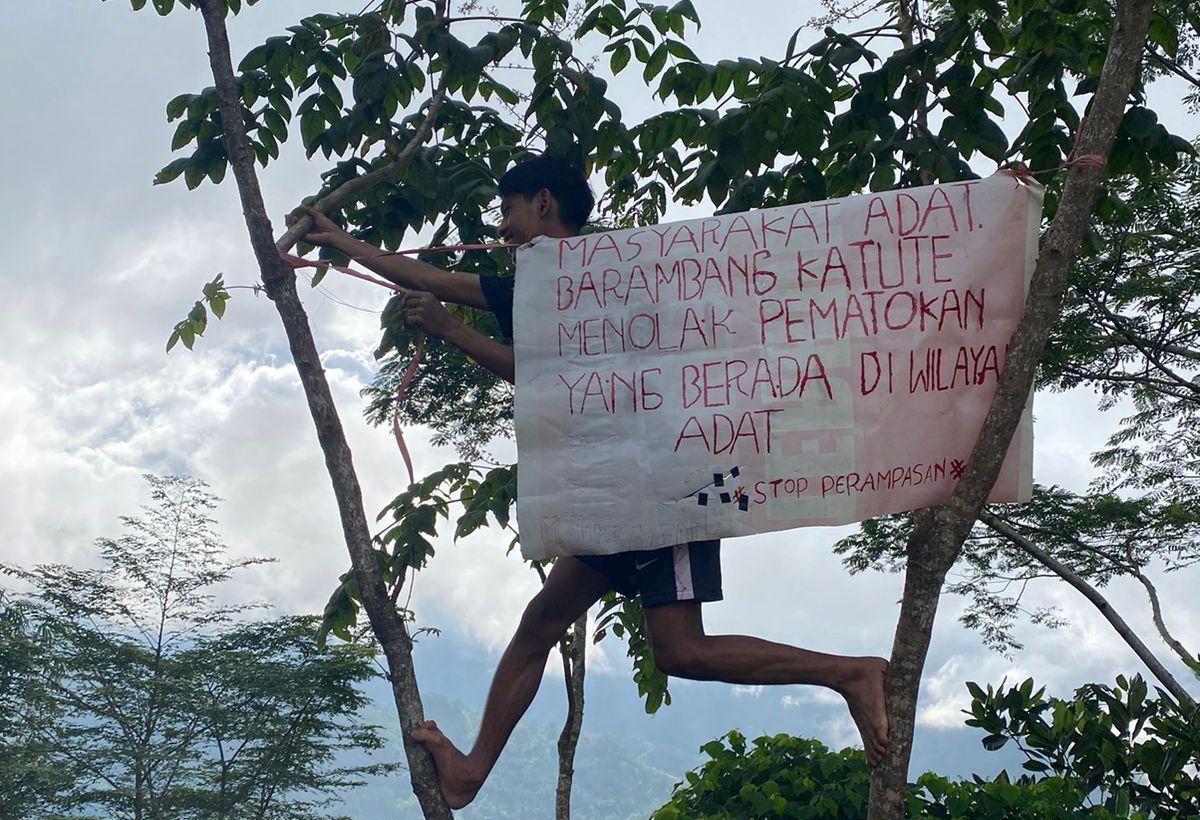 MASYARAKAT ADAT.
BARAMBANG KATUTE
MENOLAK PEMATOKAN
YANG BERADA DI WILAYA
ADAT
#STOP PERAMPASAN#